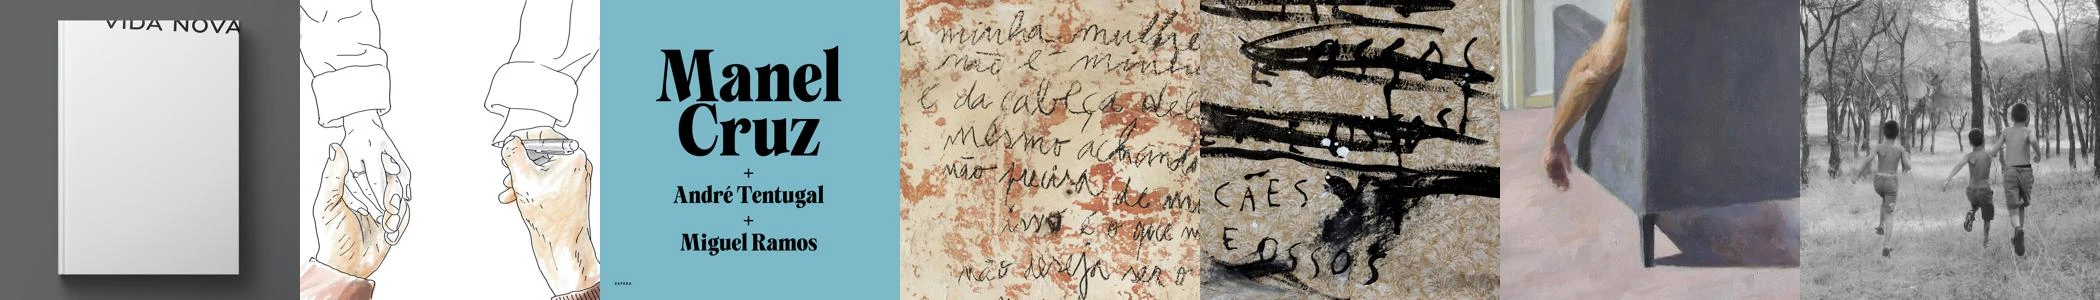 VIDA NOVA
Manel
Cruz
+
André Tentugal
+
Miguel Ramos
ESFERA
a minha mulher
não é minha
é da cabeça dela
mesmo achando
não precisa de mi
isso é o que m
não deseja ser o
CÃES
E OSSOS